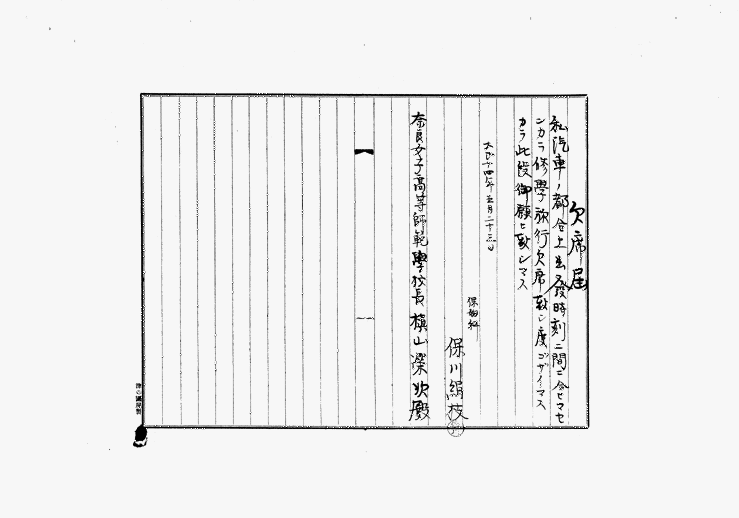 欠席届
私汽車ノ都合上出發時刻ニ間ニ合ヒマセ
ンカラ修學旅行欠席致シ度ゴザイマス
カラ此段御願ヒ致シマス
大正十四年五月二十三日
保姆科
保川絹枝
奈良女子高等師範學校長槇山榮次殿